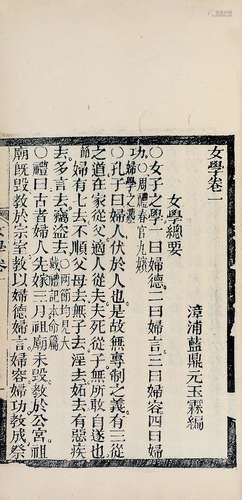 女學卷一
漳浦藍鼎元玉霖編
女學總要
〇女子之學一曰婦德二曰婦言三曰婦容四曰婦
功〇周禮春官九嬪婦學之義
〇孔子曰婦人伏於人也是故無專制之義有三從
之道在家從父適人從夫夫死從子無所敢自遂也
節婦有七去不順父母去無子去淫去妬去有惡疾
去多言去竊盜去〇兩節均見大戴禮記本命篇
〇禮曰古者婦人先嫁三月祖廟未毀教於公宮祖
廟既毀教於宗室教以婦德婦言婦容婦功教成祭